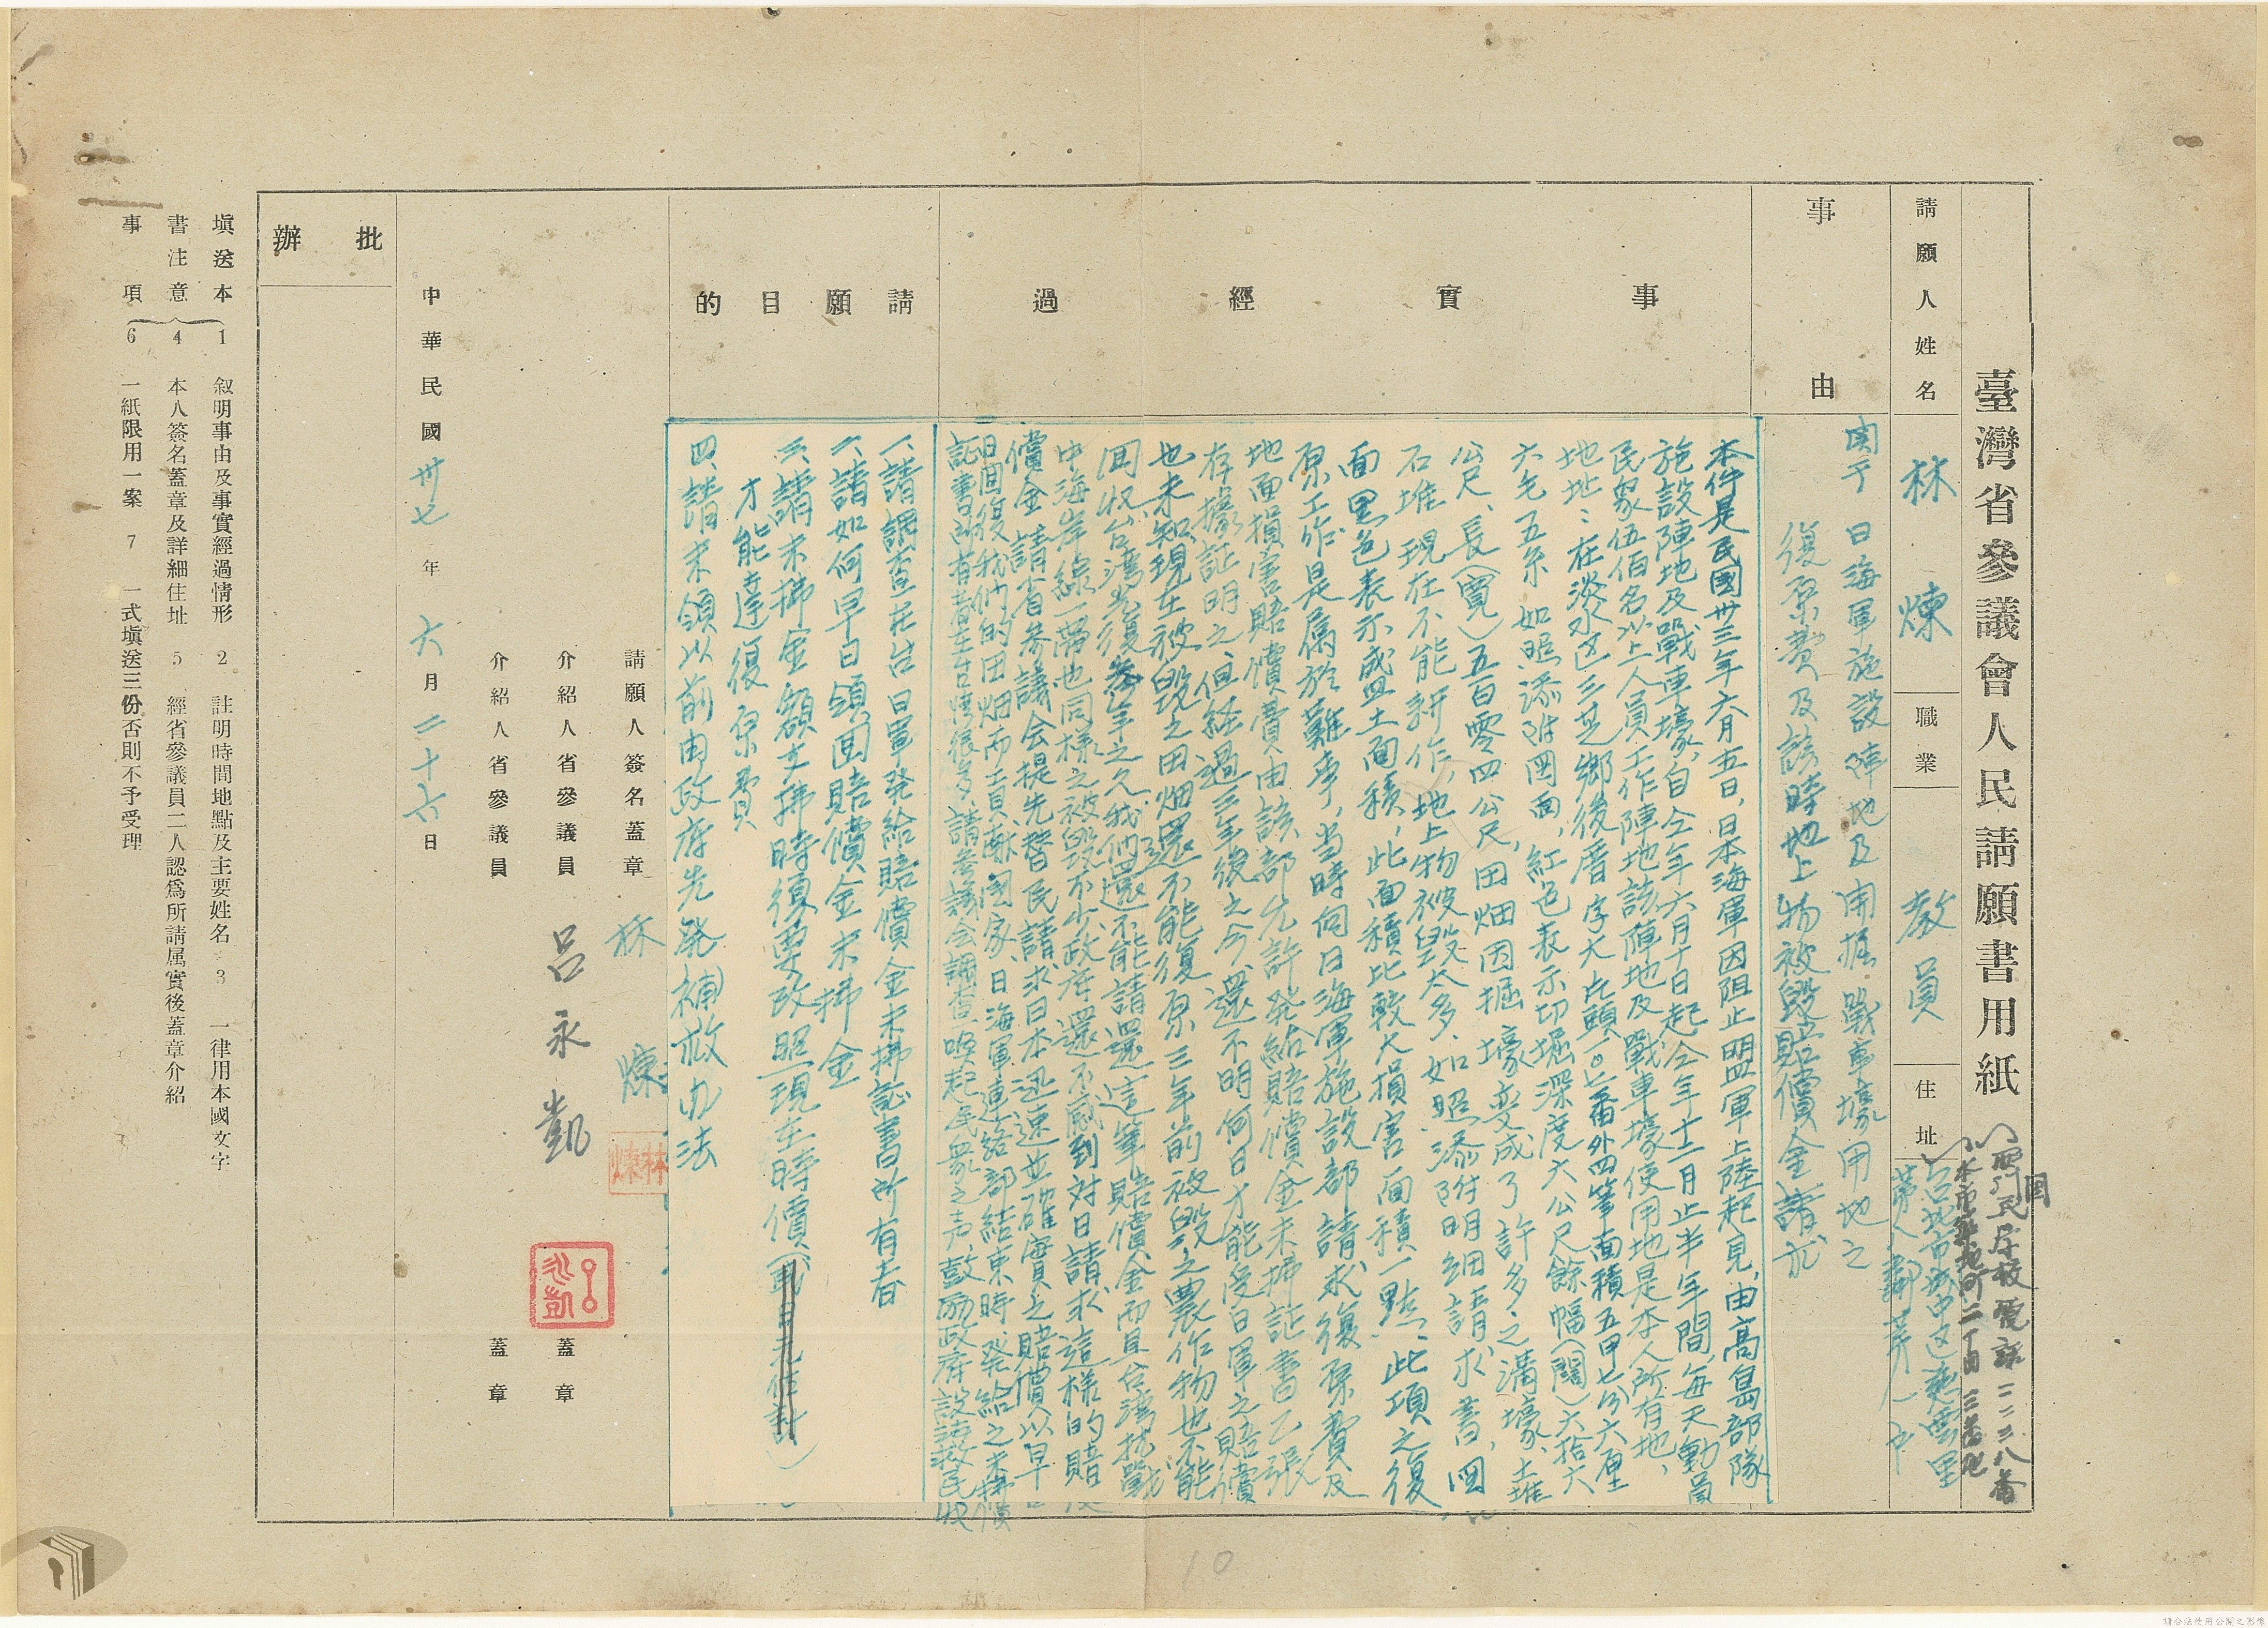 臺灣省參議會人民請願書用紙
請願人姓名 林煉 職業 教員 住址 台北市城中区
事由 関于日海軍施設陣地及開掘戰車壕用地之
復原費及該時地上物被毀賠償金請求
事實經過
本件是民國卅三年六月五日，日本海軍因阻止盟軍上陸起見，由高島部隊
施設陣地及戰車壕，自仝年六月十日起仝年十二月止半年間，每天動員
民衆伍佰名以上人員工作陣地該陣地及戰車壕使用地是本人所有地，
地址：在淡水区三芝鄉後厝字大片頭一〇七番外四筆面積五甲七分六厘
六毛五糸 如照添附図面，紅色表示切堀深度六公尺餘幅（闊）六拾六
公尺、長（寬）五百零四公尺，田畑因掘壕变成了許多之溝壕、土堆
石堆 現在不能耕作，地上物被毀太多，如照添附明細請求書，図
面黑色表示盛土面積，此面積比較大損害面積一點，此項之復
原工作是屬於難事，当時向日海軍施設部請求復原費及
地面損害賠償費由該部先許発給賠償金未拂証書乙張
存據証明之，但経過三年後之今，還不明何日才能受日軍之賠償
也未知，現在被毀之田畑還不能復原三年前被毀之農作物也不能
回收，台湾光復叁年之久我們還不能請還這筆賠償金而且台湾抗戰
中海岸線一帶也同様之被毀不少，政府還不感到対日請求這様的賠
償金，請省參議会提先替民請求日本迅速並確實之賠償以早
日回復我們的田畑而貢献國家，日海軍連絡部結束時発給之未拂償
証書所有者在台湾很多，請參議会調查，喚起民衆之声鼓励政府設法救民
請願目的
一、請調查在台日軍発給賠償金未拂証書所有者
二、請如何早日領回賠償金未拂金
三、請未拂金額支拂時須要改照現在時價
才能達復原費
四、請未領以前由政府先発補救办法
請願人簽名蓋章 林煉
介紹人省參議員 呂永凱 蓋章
介紹人省參議員 蓋章
中華民國卅七年六月二十六日
批辦
填送本書注意事項
1 叙明事由及事實經過情形 2 註明時間地點及主要姓名 3 一律用本國文字
4 本人簽名蓋章及詳細住址 5 經省參議員二人認爲所請属實後蓋章介紹
6 一紙限用一案 7 一式塡送三份否則不予受理
10
請合法使用公開之影像